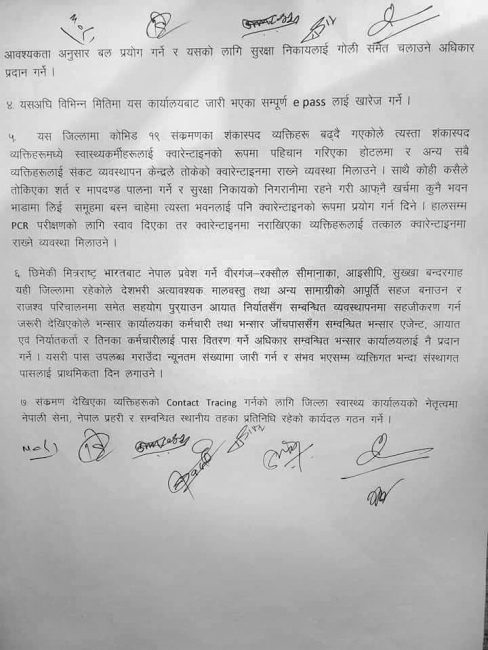 आवश्यकता अनुसार बल प्रयोग गर्ने र यसको लागि सुरक्षा निकायलाई गोली समेत चलाउने अधिकार
प्रदान गर्ने ।
४. यसअघि विभिन्न मितिमा यस कार्यालयबाट जारी भएका सम्पूर्ण e pass लाई खारेज गर्ने ।
५. यस जिल्लामा कोभिड १९ संक्रमणका शंकास्पद व्यक्तिहरू बढ्दै गएकोले त्यस्ता शंकास्पद
व्यक्तिहरूमध्ये स्वास्थ्यकर्मीहरूलाई क्वारेन्टाइनको रूपमा पहिचान गरिएका होटलमा र अन्य सबै
व्यक्तिहरूलाई संकट व्यवस्थापन केन्द्रले तोकेको क्वारेन्टाइनमा राख्ने व्यवस्था मिलाउने । साथै कोही कसैले
तोकिएका शर्त र मापदण्ड पालना गर्ने र सुरक्षा निकायको निगरानीमा रहने गरी आफ्नै खर्चमा कुनै भवन
भाडामा लिई समूहमा बस्न चाहेमा त्यस्ता भवनलाई पनि क्वारेन्टाइनको रूपमा प्रयोग गर्न दिने । हालसम्म
PCR परीक्षणको लागि स्वाव दिएका तर क्वारेन्टाइनमा नराखिएका व्यक्तिहरूलाई तत्काल क्वारेन्टाइनमा
राख्ने व्यवस्था मिलाउने ।
६. छिमेकी मित्रराष्ट्र भारतबाट नेपाल प्रवेश गर्ने वीरगंज-रक्सौल सीमानाका, आइसीपि, सुख्खा बन्दरगाह
यही जिल्लामा रहेकोले देशभरी अत्यावश्यक मालवस्तु तथा अन्य सामाग्रीको आपूर्ति सहज बनाउन र
राजश्व परिचालनमा समेत सहयोग पुर्‍याउन आयात निर्यातसँग सम्बन्धित व्यवस्थापनमा सहजीकरण गर्न
जरूरी देखिएकोले भन्सार कार्यालयका कर्मचारी तथा भन्सार जाँचपाससँग सम्बन्धित भन्सार एजेन्ट, आयात
एवं निर्यातकर्ता र तिनका कर्मचारीलाई पास वितरण गर्ने अधिकार सम्बन्धित भन्सार कार्यालयलाई नै प्रदान
गर्ने । यसरी पास उपलब्ध गराउँदा न्यूनतम संख्यामा जारी गर्न र संभव भएसम्म व्यक्तिगत भन्दा संस्थागत
पासलाई प्राथमिकता दिन लगाउने ।
७. संक्रमण देखिएका व्यक्तिहरूको Contact Tracing गर्नको लागि जिल्ला स्वास्थ्य कार्यालयको नेतृत्वमा
नेपाली सेना, नेपाल प्रहरी र सम्वन्धित स्थानीय तहका प्रतिनिधि रहेको कार्यदल गठन गर्ने ।